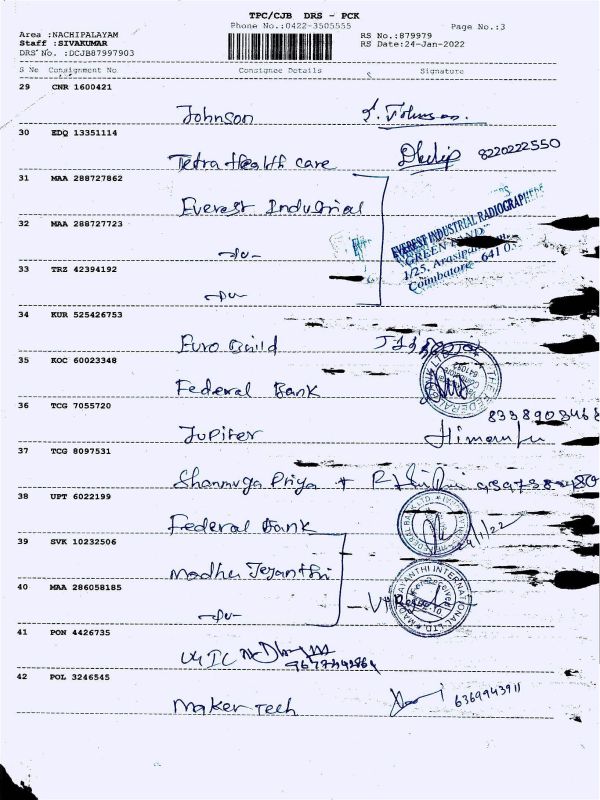 TPC/CJB DRS - PCK
Phone No.:0422-3505555 Page No.:3
Area :NACHIPALAYAM RS No.:879979
Staff :SIVAKUMAR RS Date:24-Jan-2022
DRS No. :DCJB87997903
S No Consignment No Consignee Details Signature
29 CNR 1600421
Johnson J. Johnson.
30 EDQ 13351114
Tetra Health care Dhilip 8220222550
31 MAA 288727862
Everest Industrial
EVEREST INDUSTRIAL RADIOGRAPHERS
"GREEN LAND"
1/25, Arasipa
Coimbatore 641 0
32 MAA 288727723
-Do-
33 TRZ 42394192
-Do-
34 KUR 525426753
Euro Build
35 KOC 60023348
Federal Bank
THE FEDERAL
36 TCG 7055720
8338908468
Jupiter Himanshu
37 TCG 8097531
Shanmuga Priya
38 UPT 6022199
Federal Bank 24/1/22
39 SVK 10232506
Madhu Jeyanthi
JAYANTHI INTERNATIONAL LTD.
40 MAA 286058185
-Do-
41 PON 4426735
42 POL 3246545
Maker Tech 6369943911